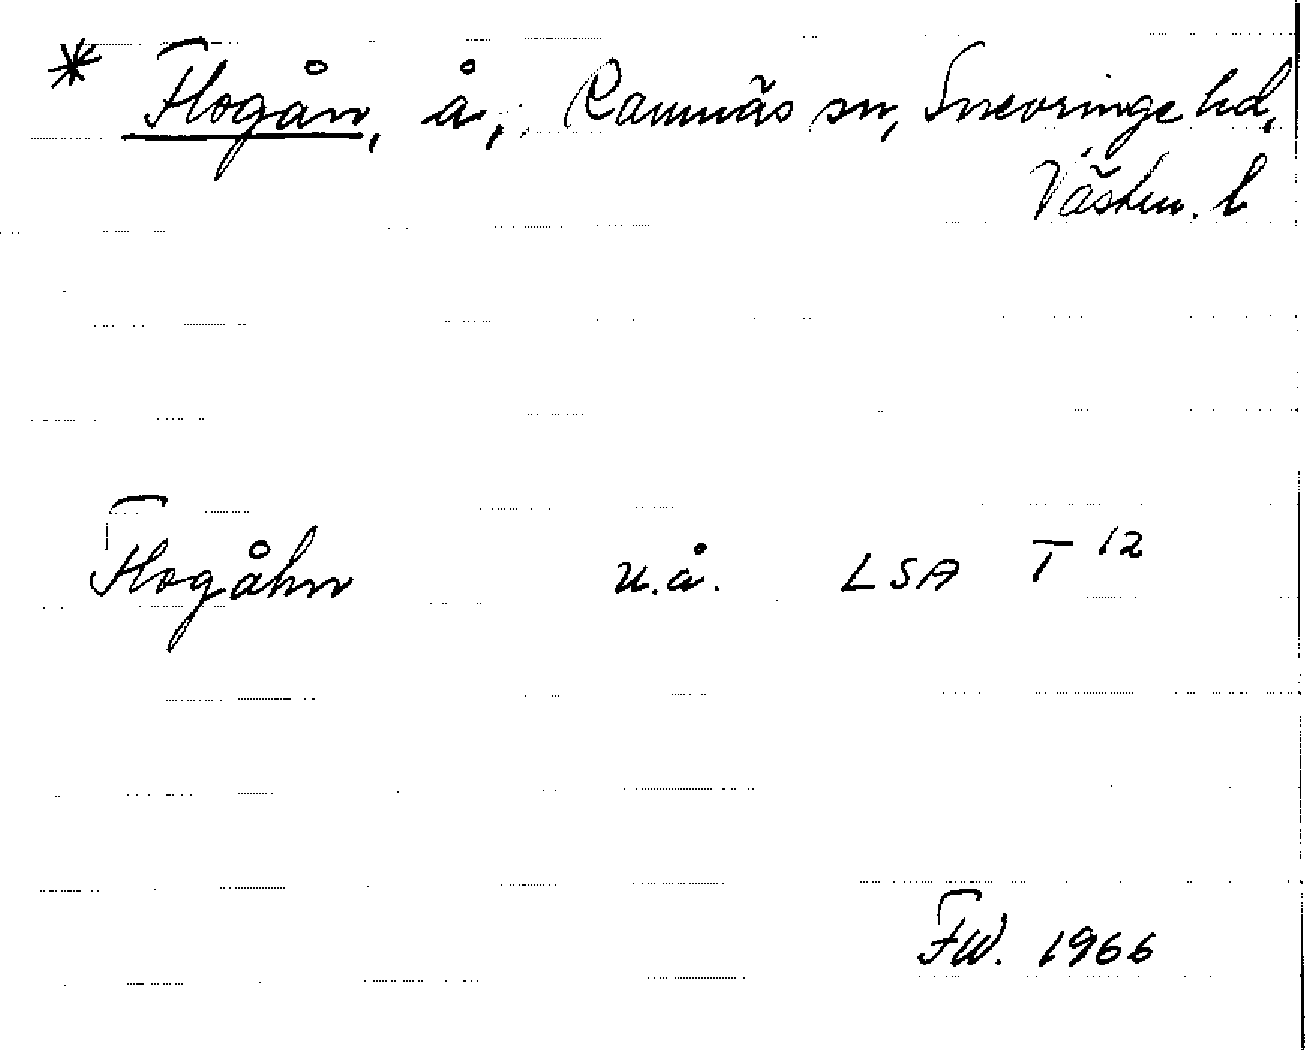 * Flogån, å, Ramnäs sn, Snevringe hd,
Västm. l
Flogåhn u.å. LSA T 12
FW. 1966